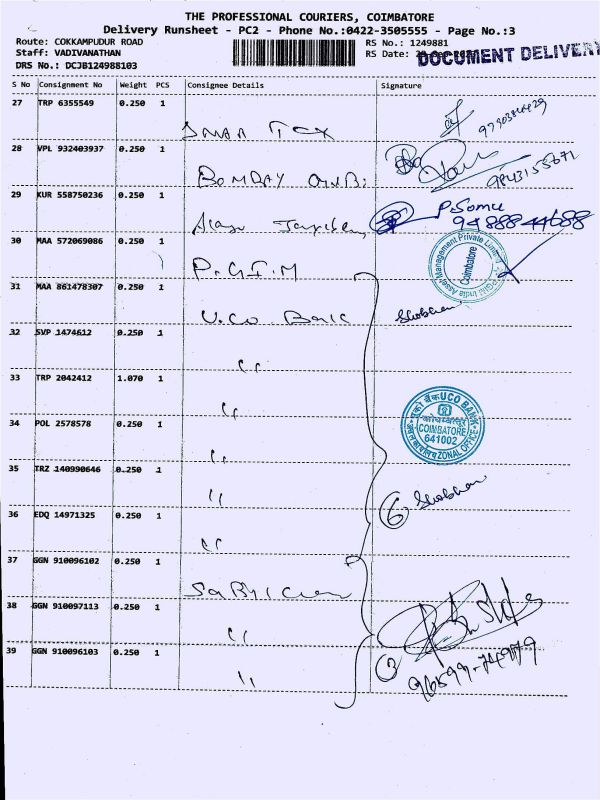 THE PROFESSIONAL COURIERS, COIMBATORE
Delivery Runsheet - PC2 - Phone No.:0422-3505555 - Page No.:3
Route: COKKAMPUDUR ROAD RS No.: 1249881
Staff: VADIVANATHAN RS Date:
DRS No.: DCJB124988103
DOCUMENT DELIVERY
S No Consignment No Weight PCS Consignee Details Signature
27 TRP 6355549 0.250 1
28 VPL 932403937 0.250 1 BOMBAY
9843155671
29 KUR 558750236 0.250 1 P.Somu
9488844688
30 MAA 572069086 0.250 1 P.G.I.M
Management Private Limited
Coimbatore
31 MAA 861478307 0.250 1 U.Co Bank Shobhan
32 SVP 1474612 0.250 1 "
33 TRP 2042412 1.070 1 "
34 POL 2578578 0.250 1 "
UCO BANK
COIMBATORE
641002
ZONAL OFFICE
35 TRZ 140990646 0.250 1 "
6 Shobhan
36 EDQ 14971325 0.250 1 "
37 GGN 910096102 0.250 1
38 GGN 910097113 0.250 1 "
39 GGN 910096103 0.250 1 "
3